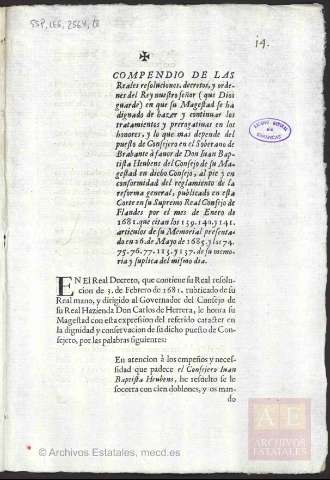 SSP, LEG, 2564, 18
19.
✠
COMPENDIO DE LAS
Reales resoluciones, decretos, y orde-
nes del Rey nuestro señor (que Dios
guarde) en que su Magestad se ha
dignado de hazer y continuar los
tratamientos y prerogatiuas en los
honores, y lo que mas depende del
puesto de Consejero en el Soberano de
Brabante à fauor de Don Iuan Bap-
tista Heubens del Consejo de su Ma-
gestad en dicho Consejo, al pie y en
conformidad del reglamento de la
reforma general, publicado en esta
Corte en su Supremo Real Consejo de
Flandes por el mes de Enero de
1681. que citan los 139. 140. y 141.
articulos de su Memorial presenta-
do en 26. de Mayo de 1685. y los 74.
75. 76. 77. 113. y 137. de su memo-
ria y suplica del mismo dia.
EN El Real Decreto, que contiene su Real resolu-
cion de 3. de Febrero de 1681. rubricado de su
Real mano, y dirigido al Governador del Consejo de
su Real Hazienda Don Carlos de Herrera, le honra su
Magestad con esta expression del referido caracter en
la dignidad y conservacion de su dicho puesto de Con-
sejero, por las palabras siguientes:
En atencion à los empeños y neces-
sidad que padece el Consejero Iuan
Baptista Heubens, he resuelto se le
socorra con cien doblones, y os man-
do
AE
ARCHIVOS
ESTATALES
© Archivos Estatales, mecd.es